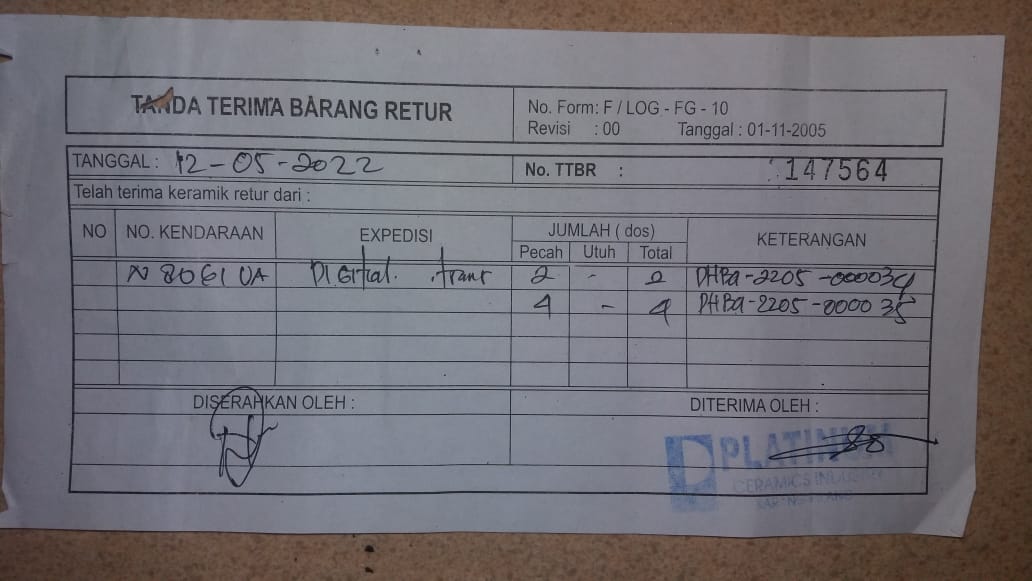 TANDA TERIMA BARANG RETUR
No. Form: F / LOG - FG - 10
Revisi : 00 Tanggal : 01-11-2005
TANGGAL : 12-05-2022
No. TTBR : 147564
Telah terima keramik retur dari :
NO NO. KENDARAAN EXPEDISI JUMLAH ( dos) KETERANGAN
Pecah Utuh Total
N 8061 UA Digital. trans 2 - 2 DHBa-2205-000034
4 - 4 DHBa-2205-000035
DISERAHKAN OLEH :
DITERIMA OLEH :
PLATINUM
CERAMICS INDUSTRY